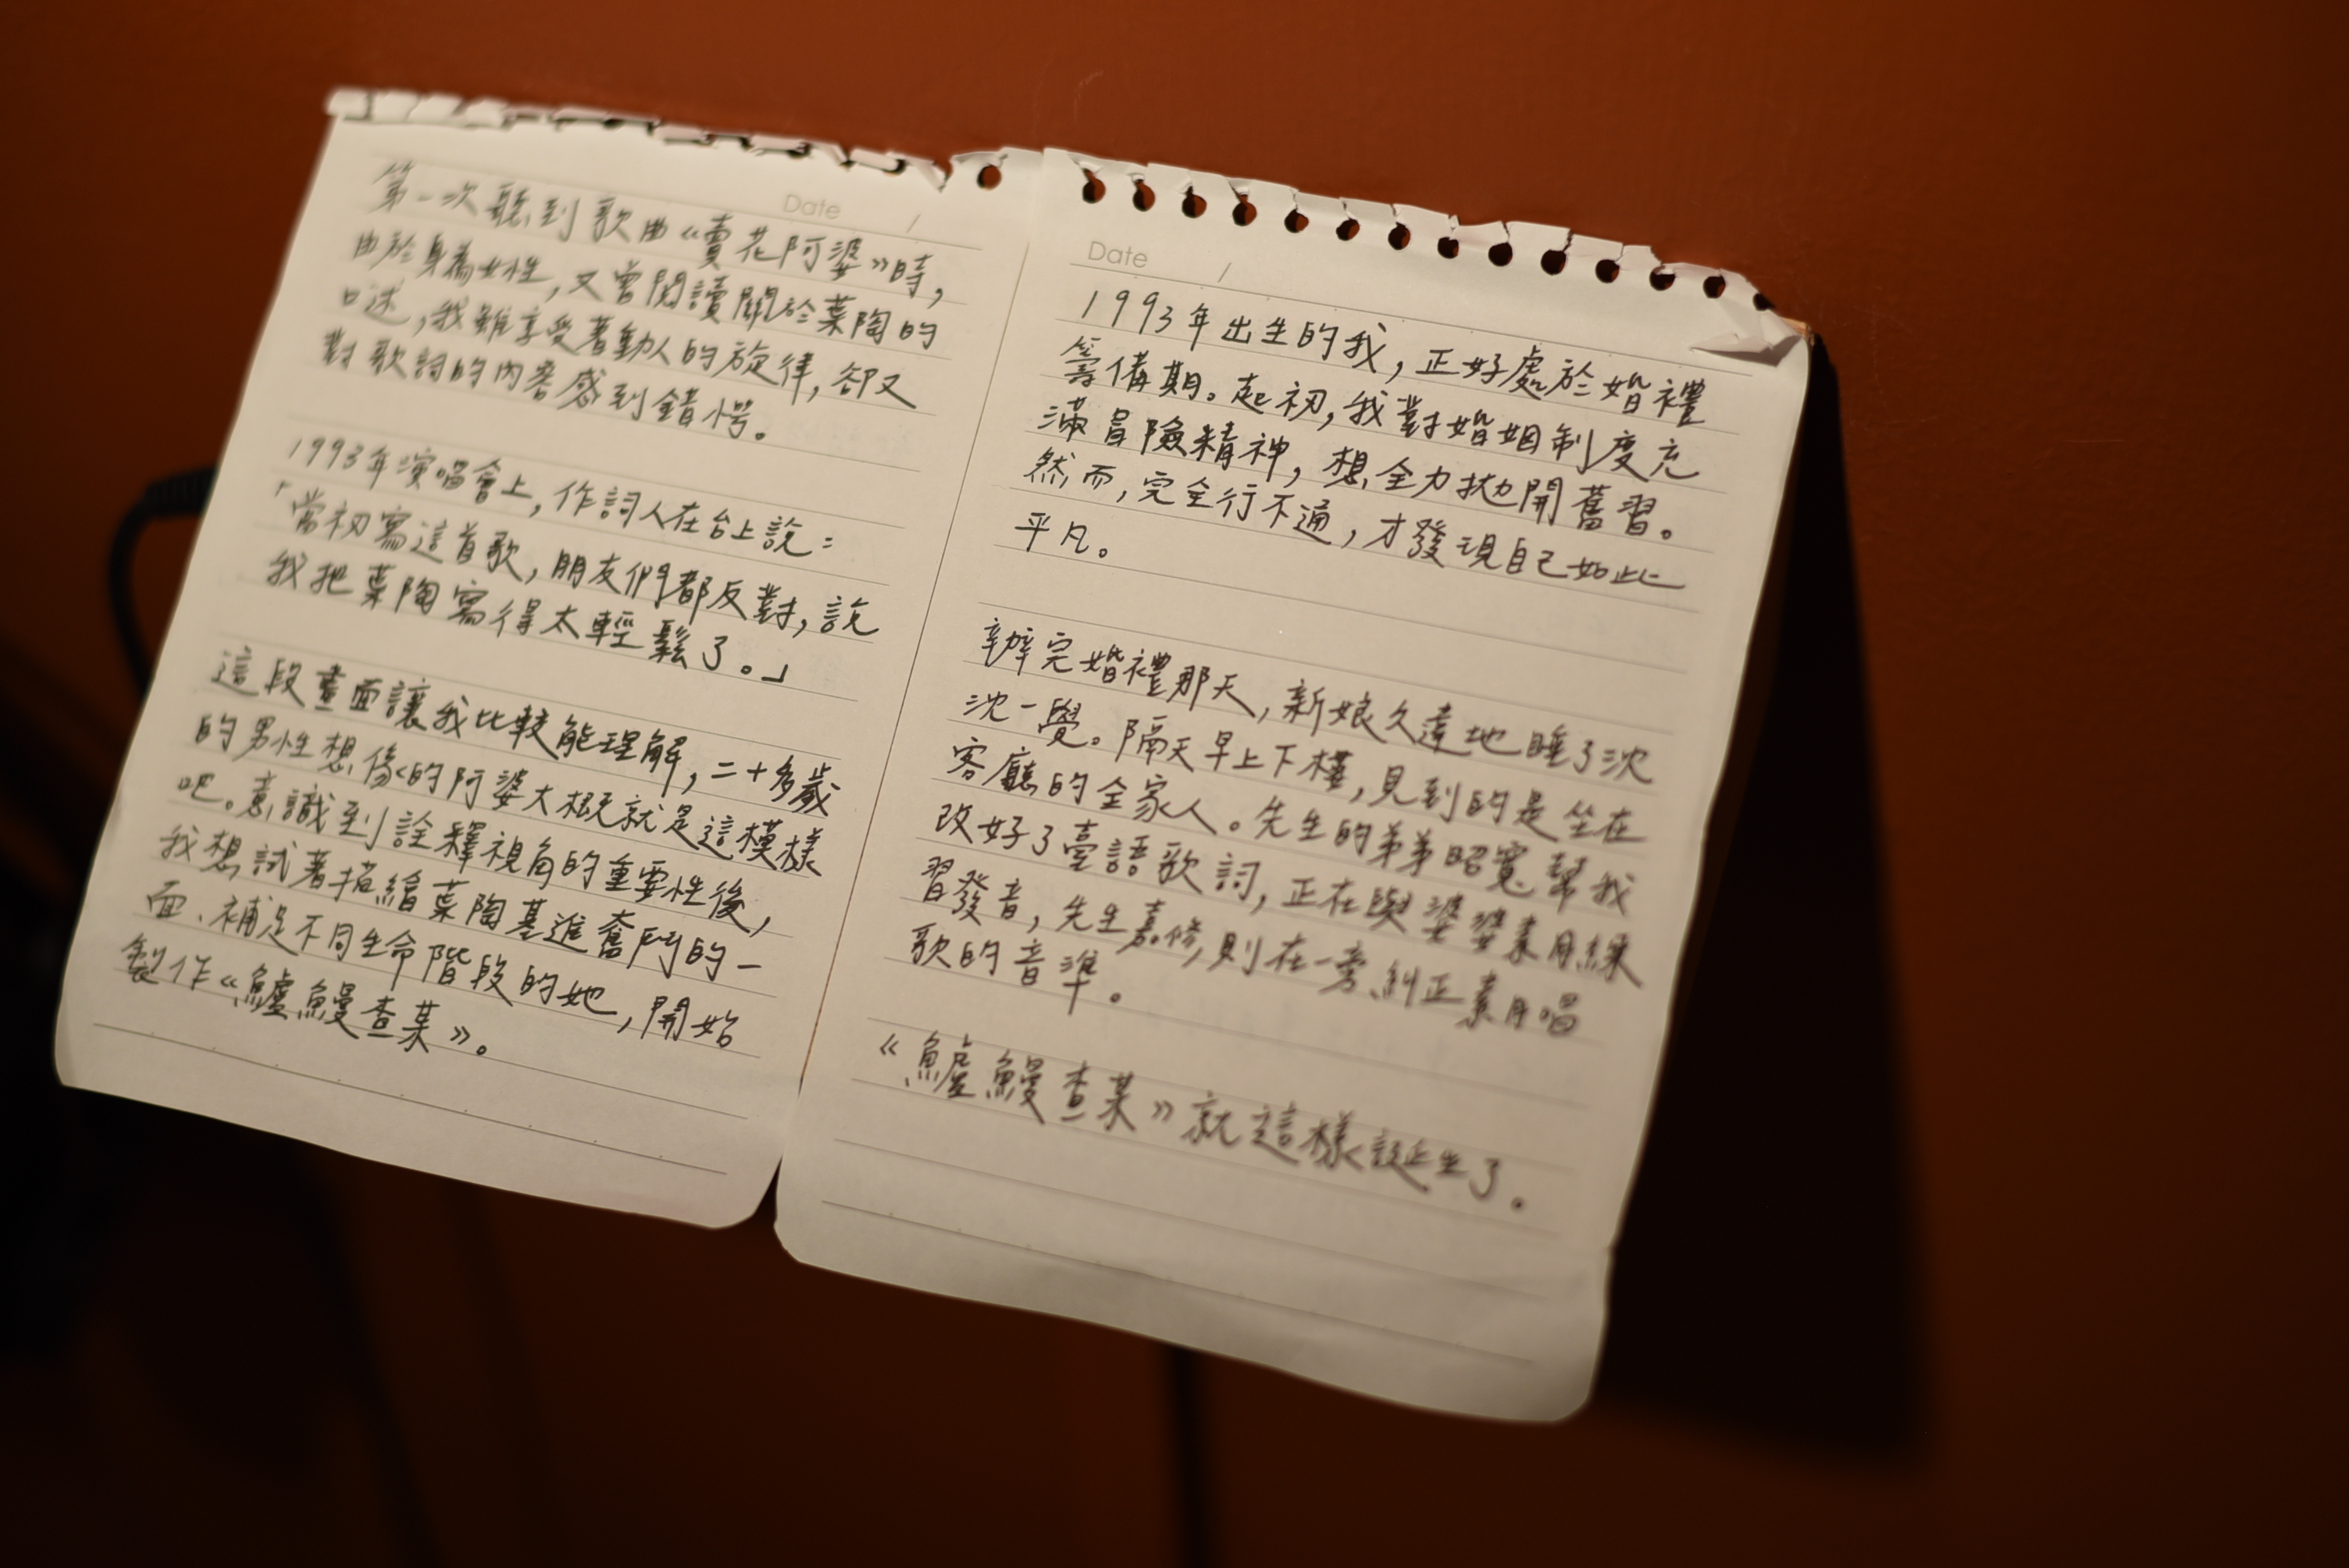 Date /
第一次聽到歌曲《賣花阿婆》時,
由於身為女性,又曾閱讀關於葉陶的
口述,我雖享受著動人的旋律,卻又
對歌詞的內容感到錯愕。
1993年演唱會上,作詞人在台上說:
「當初寫這首歌,朋友們都反對,說
我把葉陶寫得太輕鬆了。」
這段畫面讓我比較能理解,二十多歲
的男性想像的阿婆大概就是這模樣
吧。意識到詮釋視角的重要性後,
我想試著描繪葉陶基進奮鬥的一
面、補足不同生命階段的她,開始
製作《鱸鰻查某》。
Date /
1993年出生的我,正好處於婚禮
籌備期。起初,我對婚姻制度充
滿冒險精神,想全力拋開舊習。
然而,完全行不通,才發現自己如此
平凡。
辦完婚禮那天,新娘久違地睡了沈
沈一覺。隔天早上下樓,見到的是坐在
客廳的全家人。先生的弟弟昭寬幫我
改好了臺語歌詞,正在與婆婆素月練
習發音,先生嘉修,則在一旁糾正素月唱
歌的音準。
《鱸鰻查某》就這樣誕生了。